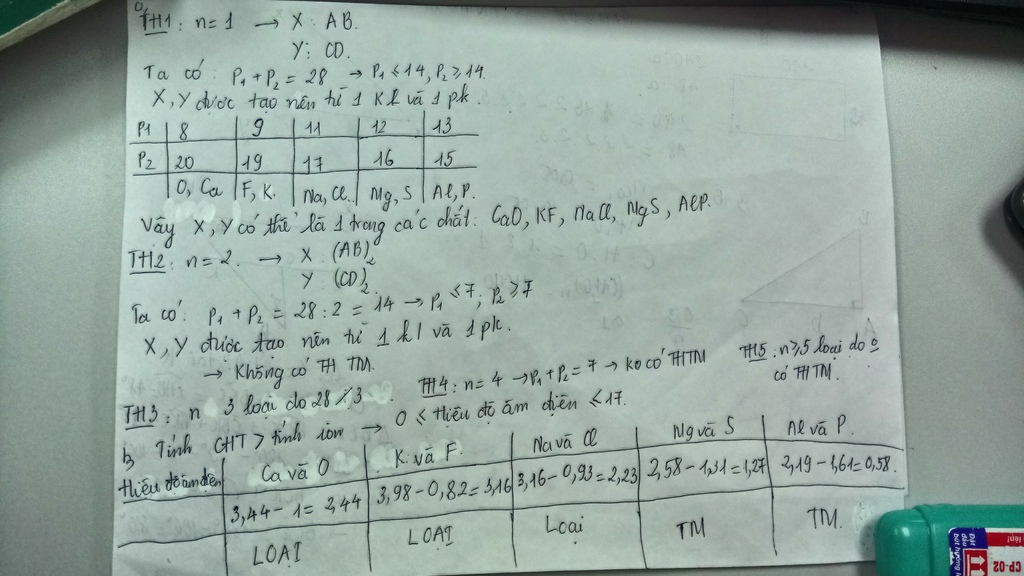 TH1: n=1 → X: AB.
Y: CD.
Ta có: P1+P2 = 28 → P1 ≤ 14, P2 ≥ 14
X, Y được tạo nên từ 1 Kl và 1 pk.
P1 8 9 11 12 13
P2 20 19 17 16 15
O, Ca F, K. Na, Cl. Mg, S Al, P.
Vậy X, Y có thể là 1 trong các chất: CaO, KF, NaCl, MgS, AlP.
TH2: n=2. → X: (AB)2
Y (CD)2
Ta có: P1 + P2 = 28:2 = 14 → P1 ≤ 7; P2 ≥ 7
X, Y được tạo nên từ 1 kl và 1 pk.
→ Không có TH TM.
TH3: n 3 loại do 28 ⋮̸ 3
TH4: n=4 → P1+P2 = 7 → ko có THTM
TH5: n≥5 loại do o
có THTM.
b, Tính CHT > tính ion → 0 ≤ Hiệu độ âm điện ≤ 1,7.
Hiệu độ âm điện Ca và O K và F. Na và Cl Mg và S Al và P.
3,44-1= 2,44 3,98-0,82=3,16 3,16-0,93=2,23 2,58-1,31=1,27 2,19-1,61=0,58.
LOẠI LOẠI Loại TM TM.
CP-02